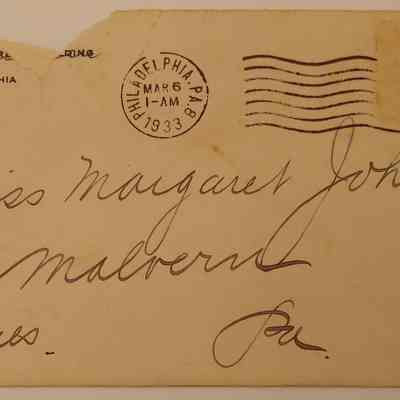 PHIA
PHILADELPHIA, PA. 8
MAR 6
1-AM
1933
iss Margaret Joh
Malvern
Pa.